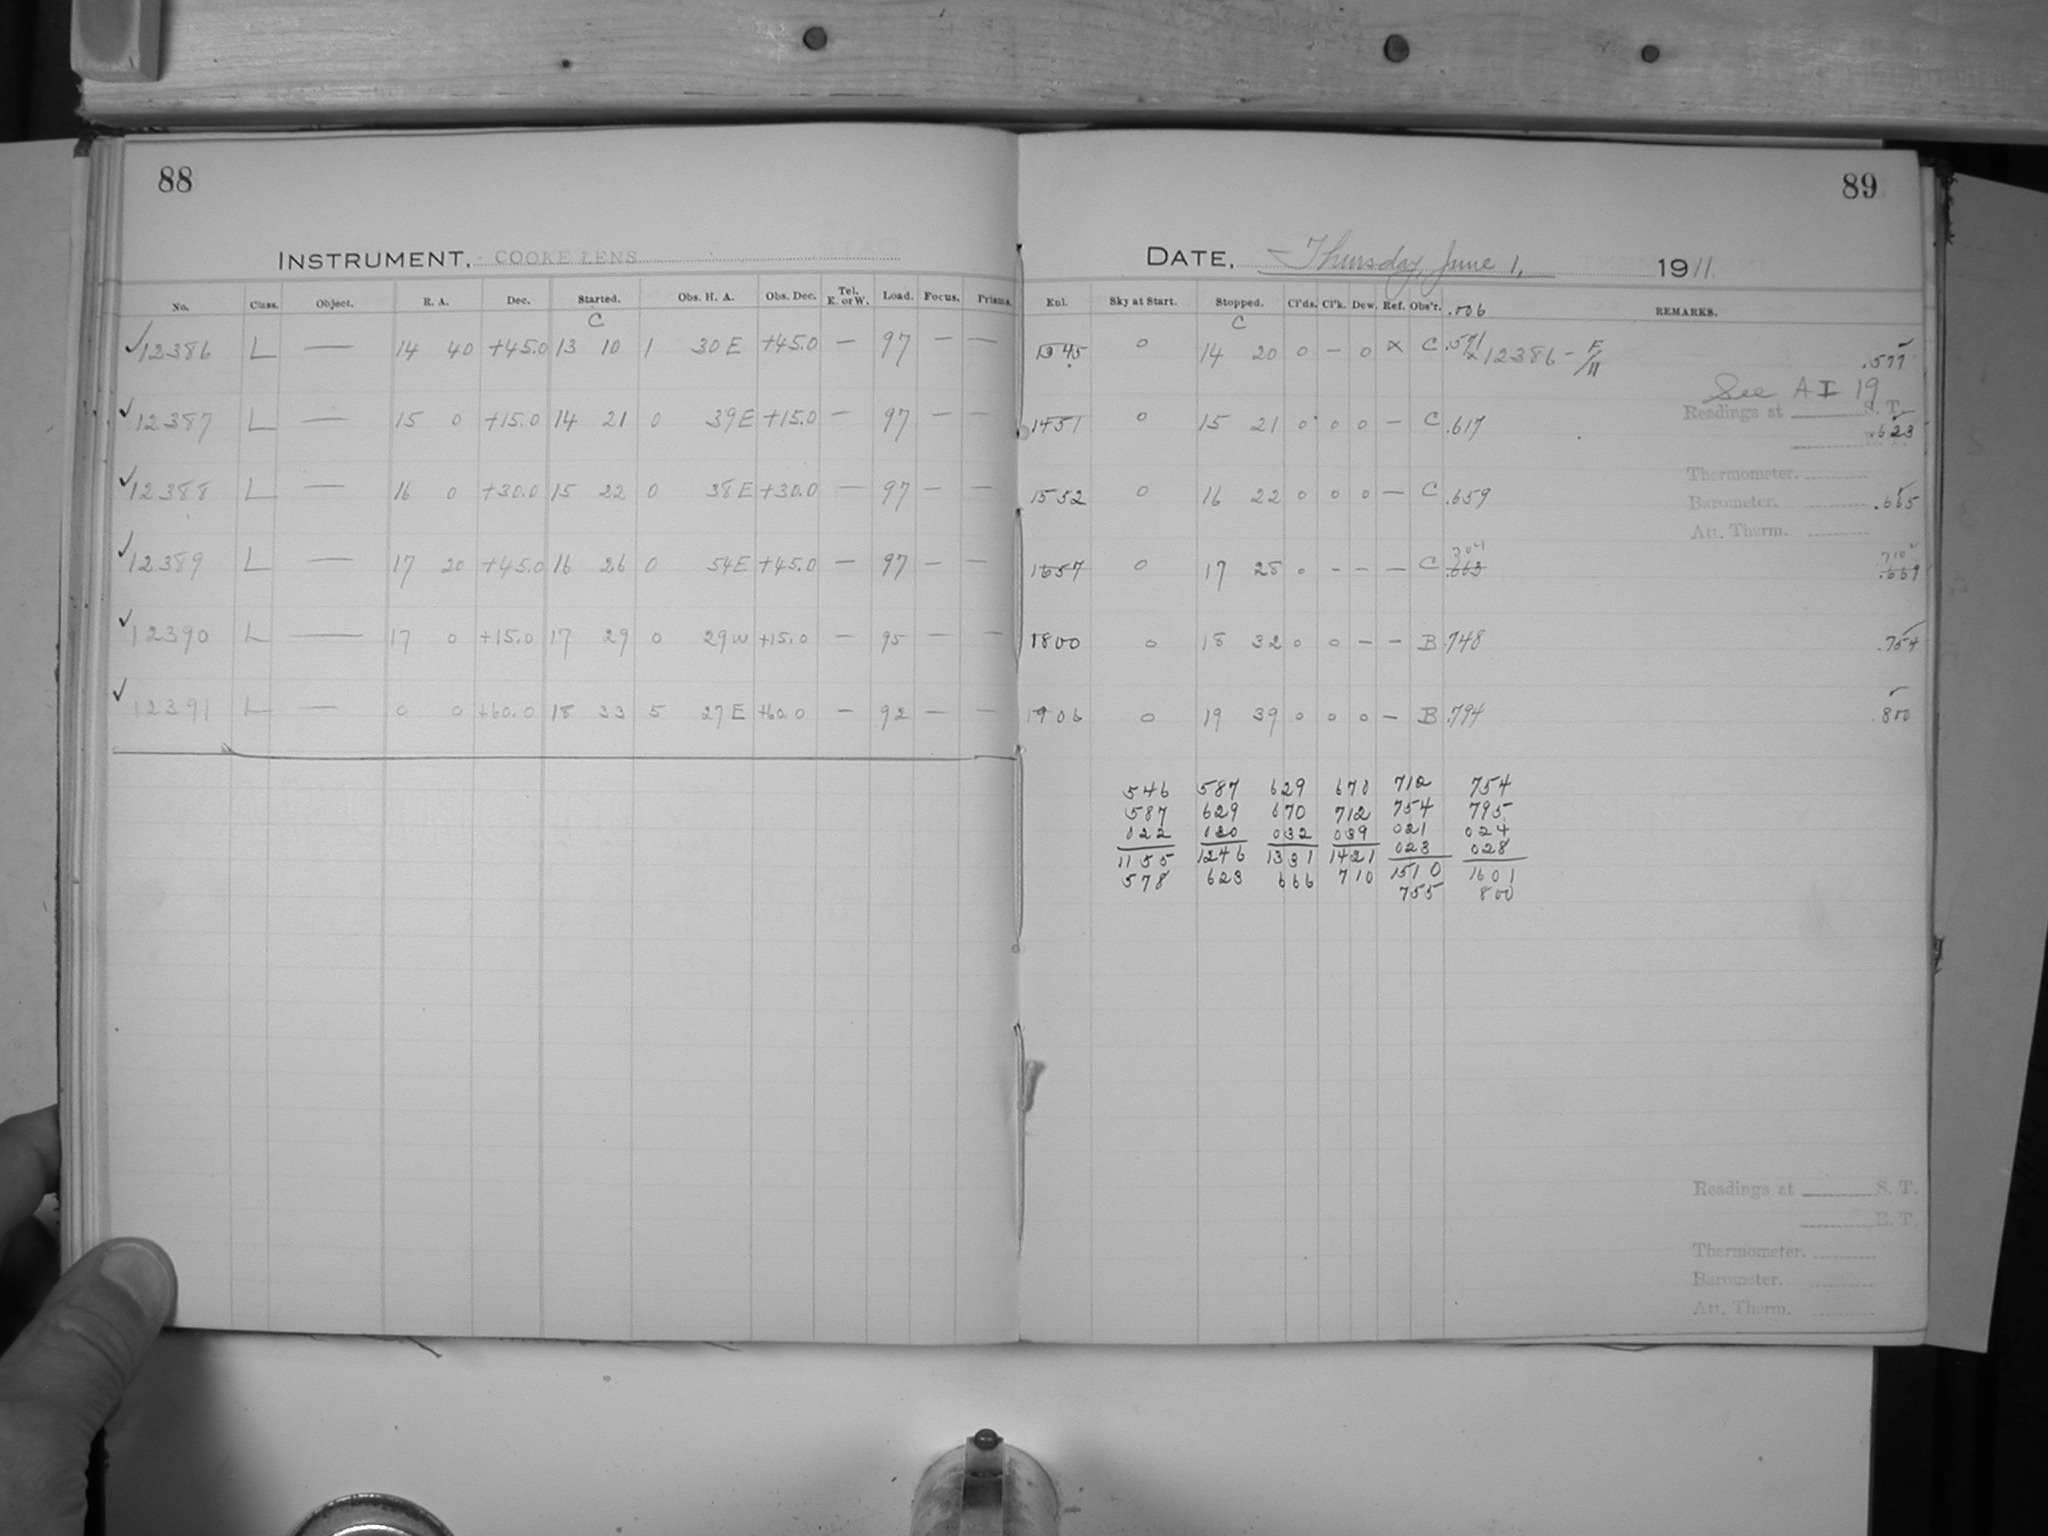 88
INSTRUMENT, COOKE LENS
No. Class. Object. R. A. Dec. Started. Obs. H. A. Obs. Dec. Tel. E. or W. Load. Focus. Prisms.
C
✓12386 L — 14 40 +45.0 13 10 1 30 E +45.0 — 97 — —
✓12387 L — 15 0 +15.0 14 21 0 39 E +15.0 — 97 — —
✓12388 L — 16 0 +30.0 15 22 0 38 E +30.0 — 97 — —
✓12389 L — 17 20 +45.0 16 26 0 54 E +45.0 — 97 — —
✓12390 L — 17 0 +15.0 17 29 0 29 W +15.0 — 95 — —
✓12391 L — 0 0 +60.0 18 33 5 27 E +60.0 — 92 — —
89
DATE, Thursday, June 1, 1911.
Enl. Sky at Start. Stopped. Cl'ds. Cl'k. Dew. Ref. Obs'r. .006 REMARKS.
C
0 14 20 0 — 0 x C .571 x 12386 - F/11 .577
See A I 19
Readings at S. T.
1451 0 15 21 0 0 0 — C .617 .623
Thermometer.
1552 0 16 22 0 0 0 — C .659 Barometer. .665
Att. Therm.
704 710
1657 0 17 28 0 — — — C .663 .669
1800 0 18 32 0 0 — — B .748 .754
1906 0 19 39 0 0 0 — B .794 .800
546 587 629 670 712 754
587 629 670 712 754 795
022 030 032 039 021 024
1155 1246 1331 1421 023 028
578 623 666 710 1510 1601
755 800
Readings at S. T.
E. T.
Thermometer.
Barometer.
Att. Therm.